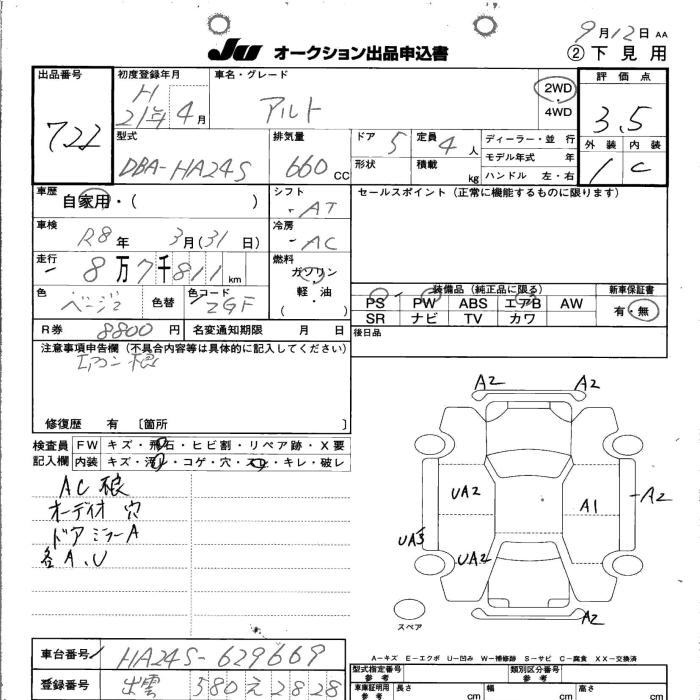 9月12日 AA
JU オークション出品申込書 ②下見用
出品番号 初度登録年月 車名・グレード 評価点
722
H
21年 4月
アルト
2WD
4WD
3.5
外装 内装
1 C
型式 排気量 ドア 定員 ディーラー・並 行
DBA-HA24S 660 CC
5 4人
モデル年式 年
形状 積載 kg ハンドル 左・右
車歴 自家用・( ) シフト AT
セールスポイント(正常に機能するものに限ります)
車検 R8年 3月(31日) 冷房 AC
走行 8万7千811km 燃料 ガソリン
軽・油
( )
色 ベージュ 色替 色コード ZGF
装備品(純正品に限る) 新車保証書
PS PW ABS エアB AW 有・無
SR ナビ TV カワ
R券 8800円 名変通知期限 月 日 後日品
注意事項申告欄(不具合内容等は具体的に記入してください)
エアコン
修復歴 有 [箇所 ]
検査員 FW キズ・飛石・ヒビ割・リペア跡・X要
記入欄 内装 キズ・汚レ・コゲ・穴・スレ・キレ・破レ
AC
オーディオ 穴
ドアミラーA
各A.U
A2 A2
UA2 A1 A2
UA3 UA2
A2
スペア
A－キズ E－エクボ U－凹み W－補修跡 S－サビ C－腐食 XX－交換済
車台番号 HA24S-629669
登録番号 出雲 580 え 2828
型式指定番号 参考 類別区分番号 参考
車庫証明用 参考 長さ cm 幅 cm 高さ cm